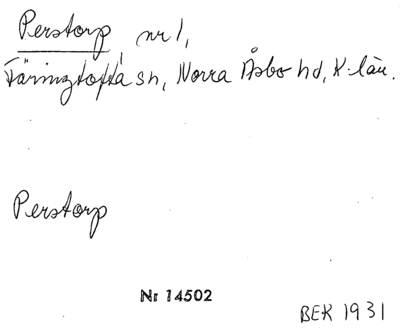 Perstorp nr 1,
Färingtofta sn, Norra Åsbo hd, K-län.
Perstorp
Nr 14502
BEK 1931